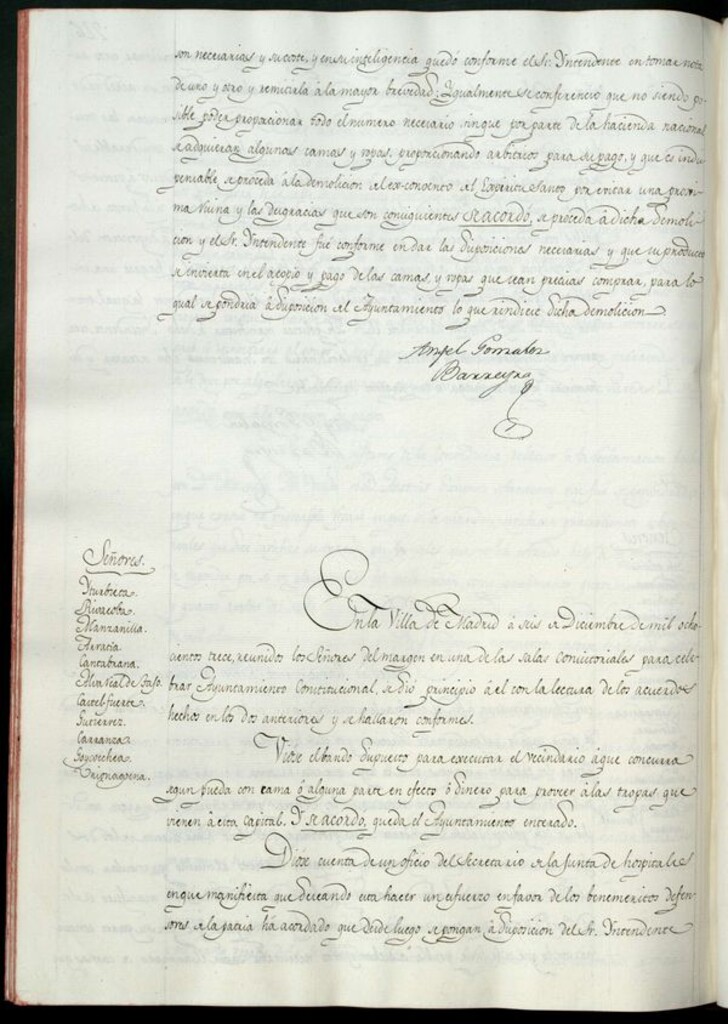 son necesarias y su coste, y en su inteligencia quedó conforme el Sr. Yntendente en tomar nota
de uno y otro y remitirla á la mayor brevedad: Ygualmente se conferenció que no siendo po-
sible poder proporcionar todo el numero necesario sin que por parte de la hacienda nacional
se adquieran algunas camas y ropas, proporcionando arbitrios para su pago, y que es indis
pensable se proceda á la demolicion del ex-convento del Espiritu Santo por evitar una proxi-
ma ruina y las desgracias que son consiguientes se acordó, se proceda á dicha demoli-
cion y el Sr. Yntendente fué conforme en dar las disposiciones necesarias y que su producto
se invierta en el acopio y pago de las camas, y ropas que sean precisas comprar, para lo
qual se pondria á disposicion del Ayuntamiento lo que rindiese dicha demolicion
Angel Gonzalez
Barreyro
Señores.
Yturbieta.
Rivacoba.
Manzanilla.
Arratia.
Cantabrana.
Alvar
Castelfuerte.
Gutierrez.
Carranza.
Goycoechea.
En la Villa de Madrid á seis de Diciembre de mil ocho-
cientos trece, reunidos los Señores del margen en una de las salas Consistoriales para cele-
brar Ayuntamiento Constitucional, se dió principio á él con la lectura de los acuerdos
hechos en los dos anteriores y se hallaron conformes.
Vióse el bando dispuesto para executar el vecindario á que concurra
segun pueda con cama ó alguna parte en efecto ó dinero para proveer á las tropas que
vienen á esta Capital. Y se acordo, queda el Ayuntamiento enterado.
Dióse cuenta de un oficio del Secretario de la Junta de hospitales
en que manifiesta que deseando esta hacer un esfuerzo en favor de los benemeritos defen-
sores de la patria ha acordado que desde luego se pongan, á disposicion del Sr. Yntendente